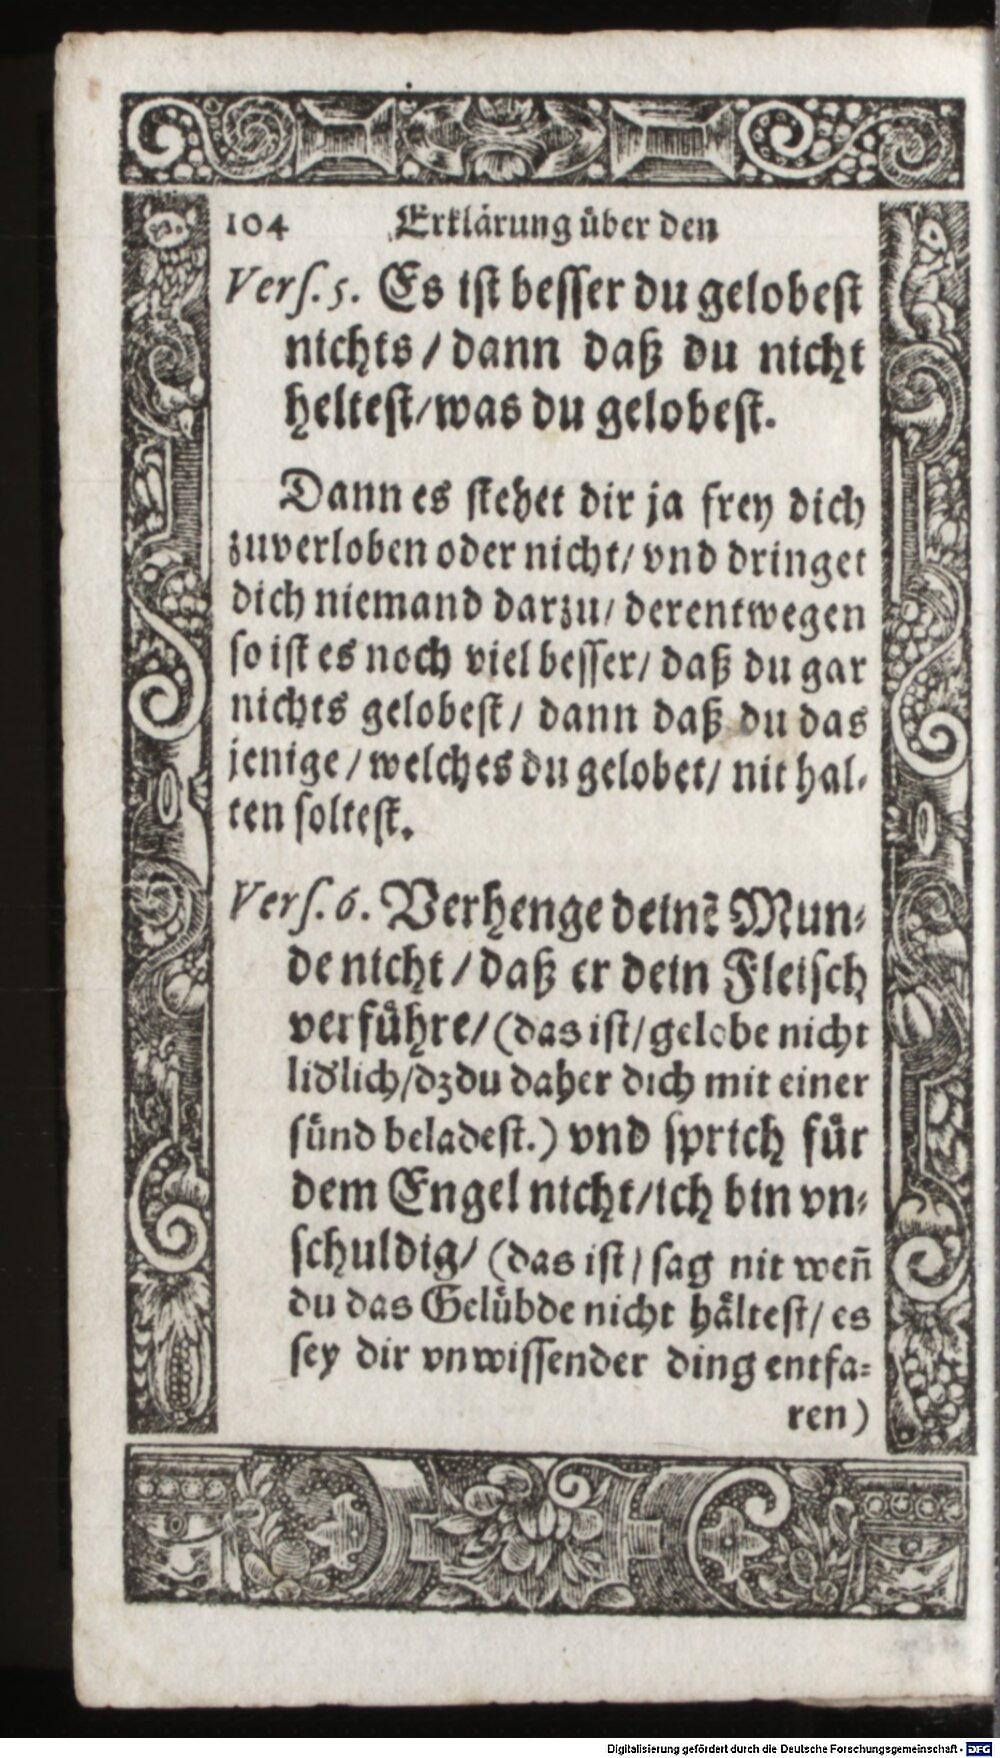 104 Erklärung über den
Verſ. 5. Es iſt beſſer du gelobeſt
nichts / dann daß du nicht
helteſt/was du gelobeſt.
Dann es ſtehet dir ja frey dich
zuverloben oder nicht/ vnd dringet
dich niemand darzu/ derentwegen
ſo iſt es noch viel beſſer/ daß du gar
nichts gelobeſt/ dann daß du das
jenige/ welches du gelobet/ nit hal⸗
ten ſolteſt.
Verſ. 6. Verhenge deinẽ Mun⸗
de nicht / daß er dein Fleiſch
verführe/ (das iſt/ gelobe nicht
lidlich/dz du daher dich mit einer
ſünd beladeſt.) vnd ſprich für
dem Engel nicht/ich bin vn⸗
ſchuldig/ (das iſt/ ſag nit wen̄
du das Gelübde nicht hälteſt/ es
ſey dir vnwiſſender ding entfa⸗
ren)
Digitalisierung gefördert durch die Deutsche Forschungsgemeinschaft - DFG